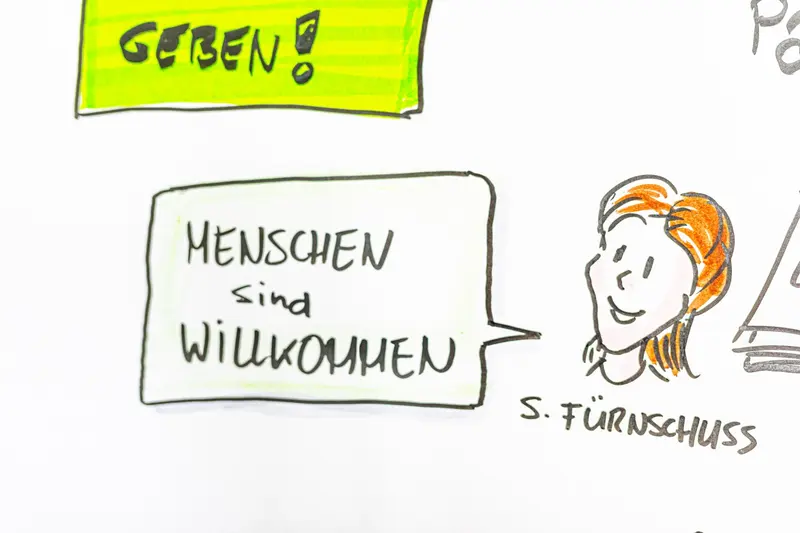 GEBEN!
MENSCHEN
sind
WILLKOMMEN
S. FÜRNSCHUSS